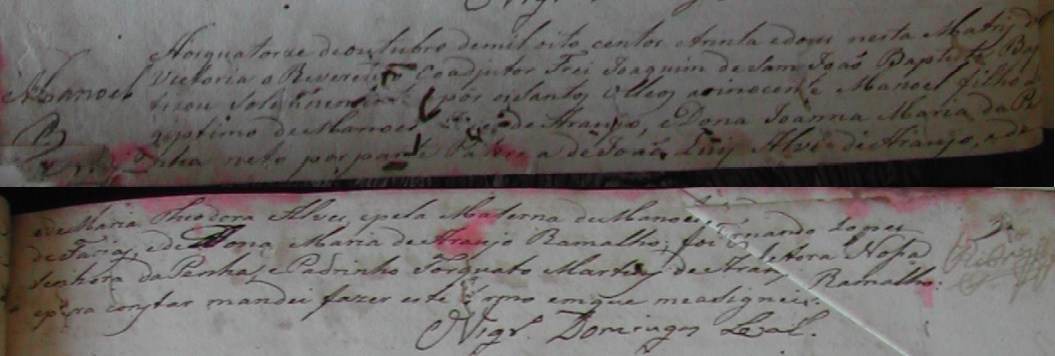 Aosquatorze deoutubro demil oito centos etrinta edous nesta Matriz de
Victoria o Reverendo Coadjutor Frei Joaquim de Sam João Baptista Bap
Manoel
tizou Solemnemente epôs os Santos Oleos aoinocente Manoel filho
legiptimo deManoel de Araujo, eDona Joanna Maria da P
neto porparte Paterna deJoão Luis Alves de Araujo, e de
edeMaria Theodora Alves, epela Materna deManoel Fernando Lopes
de Faria, ede Dona Maria deAraujo Ramalho; foi Protetora Nossa
Senhora daPenha, e Padrinho Torquato Martins deAraujo Ramalho:
epara constar mandei fazer este termo emque measignei.
Vigr. Domingos Leal.